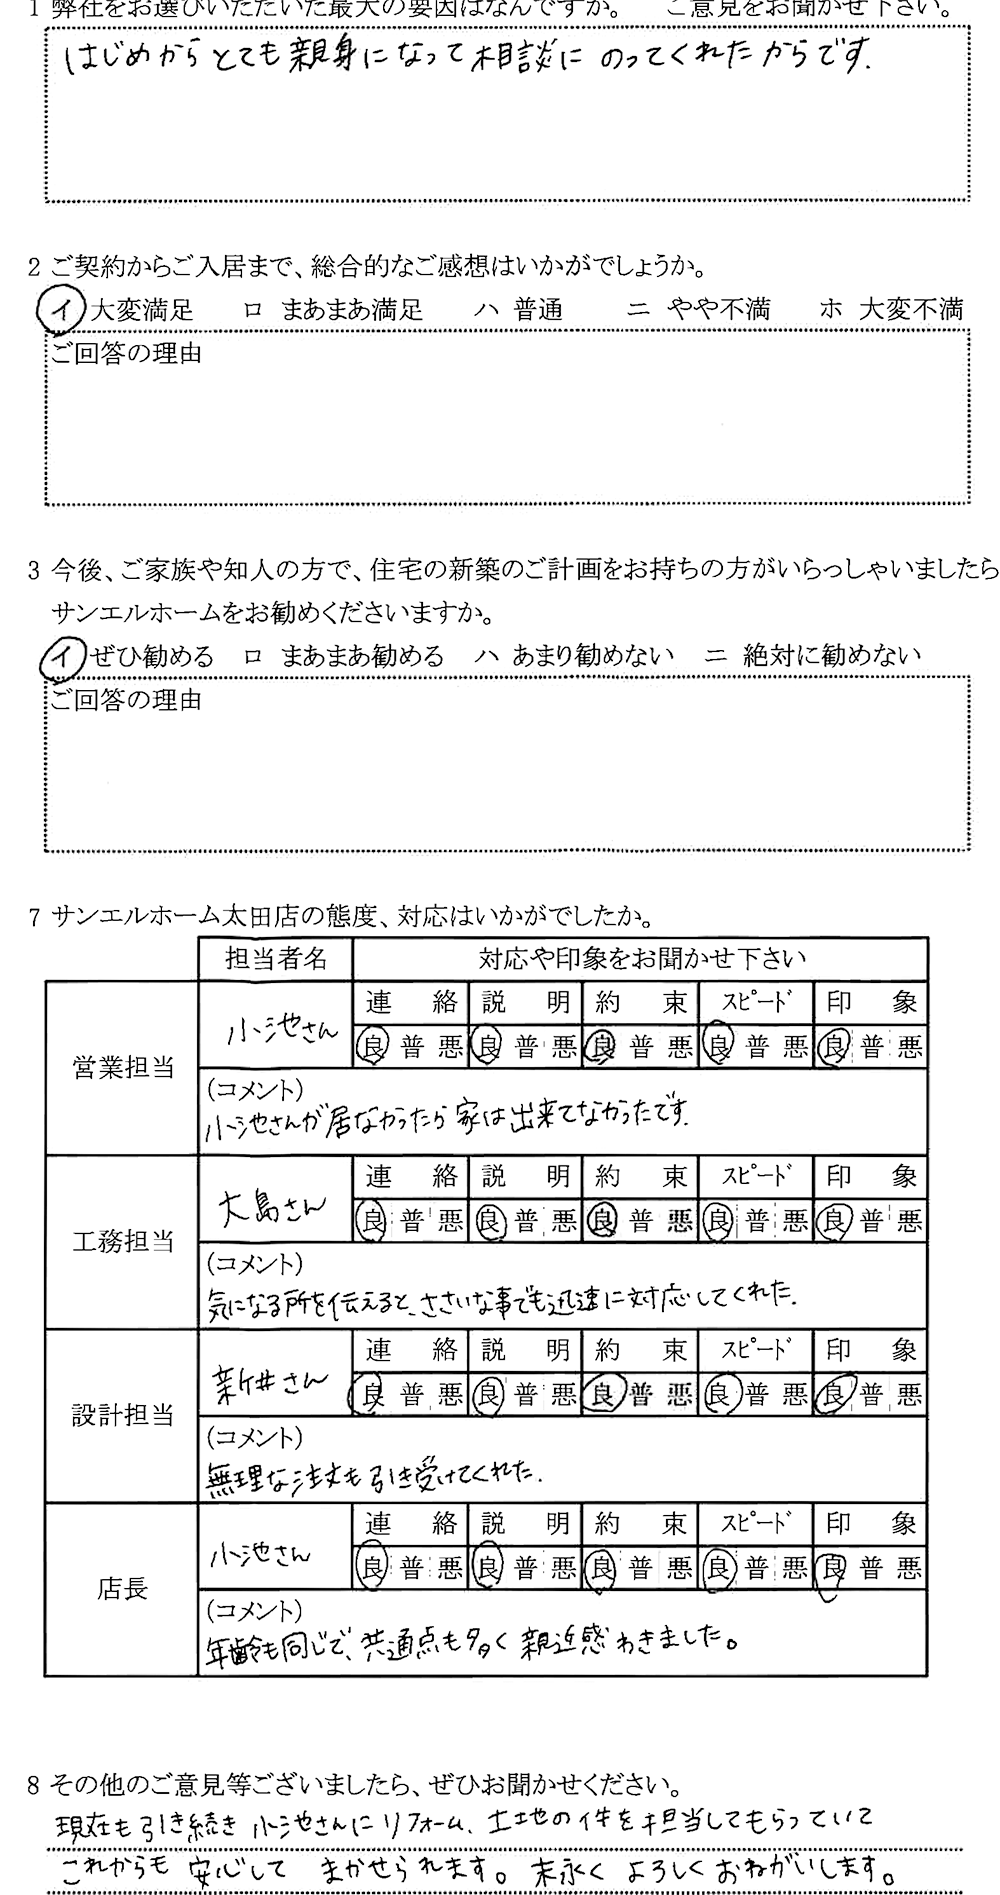 1 弊社をお選びいただいた最大の要因はなんですか。 ご意見をお聞かせ下さい。
はじめからとても親身になって相談にのってくれたからです.
2 ご契約からご入居まで、総合的なご感想はいかがでしょうか。
イ 大変満足 ロ まあまあ満足 ハ 普通 ニ やや不満 ホ 大変不満
ご回答の理由
3 今後、ご家族や知人の方で、住宅の新築のご計画をお持ちの方がいらっしゃいましたら
サンエルホームをお勧めくださいますか。
イ ぜひ勧める ロ まあまあ勧める ハ あまり勧めない ニ 絶対に勧めない
ご回答の理由
7 サンエルホーム太田店の態度、対応はいかがでしたか。
担当者名 対応や印象をお聞かせ下さい
営業担当 小池さん 連絡 説明 約束 スピード 印象
良 普 悪 良 普 悪 良 普 悪 良 普 悪 良 普 悪
(コメント)
小池さんが居なかったら家は出来てなかったです.
工務担当 大島さん 連絡 説明 約束 スピード 印象
良 普 悪 良 普 悪 良 普 悪 良 普 悪 良 普 悪
(コメント)
気になる所を伝えると、ささいな事でも迅速に対応してくれた.
設計担当 新井さん 連絡 説明 約束 スピード 印象
良 普 悪 良 普 悪 良 普 悪 良 普 悪 良 普 悪
(コメント)
無理な注文も引き受けてくれた.
店長 小池さん 連絡 説明 約束 スピード 印象
良 普 悪 良 普 悪 良 普 悪 良 普 悪 良 普 悪
(コメント)
年齢も同じで、共通点も多く親近感わきました。
8 その他のご意見等ございましたら、ぜひお聞かせください。
現在も引き続き小池さんにリフォーム、土地の件を担当してもらっていて
これからも安心してまかせられます。末永くよろしくおねがいします。